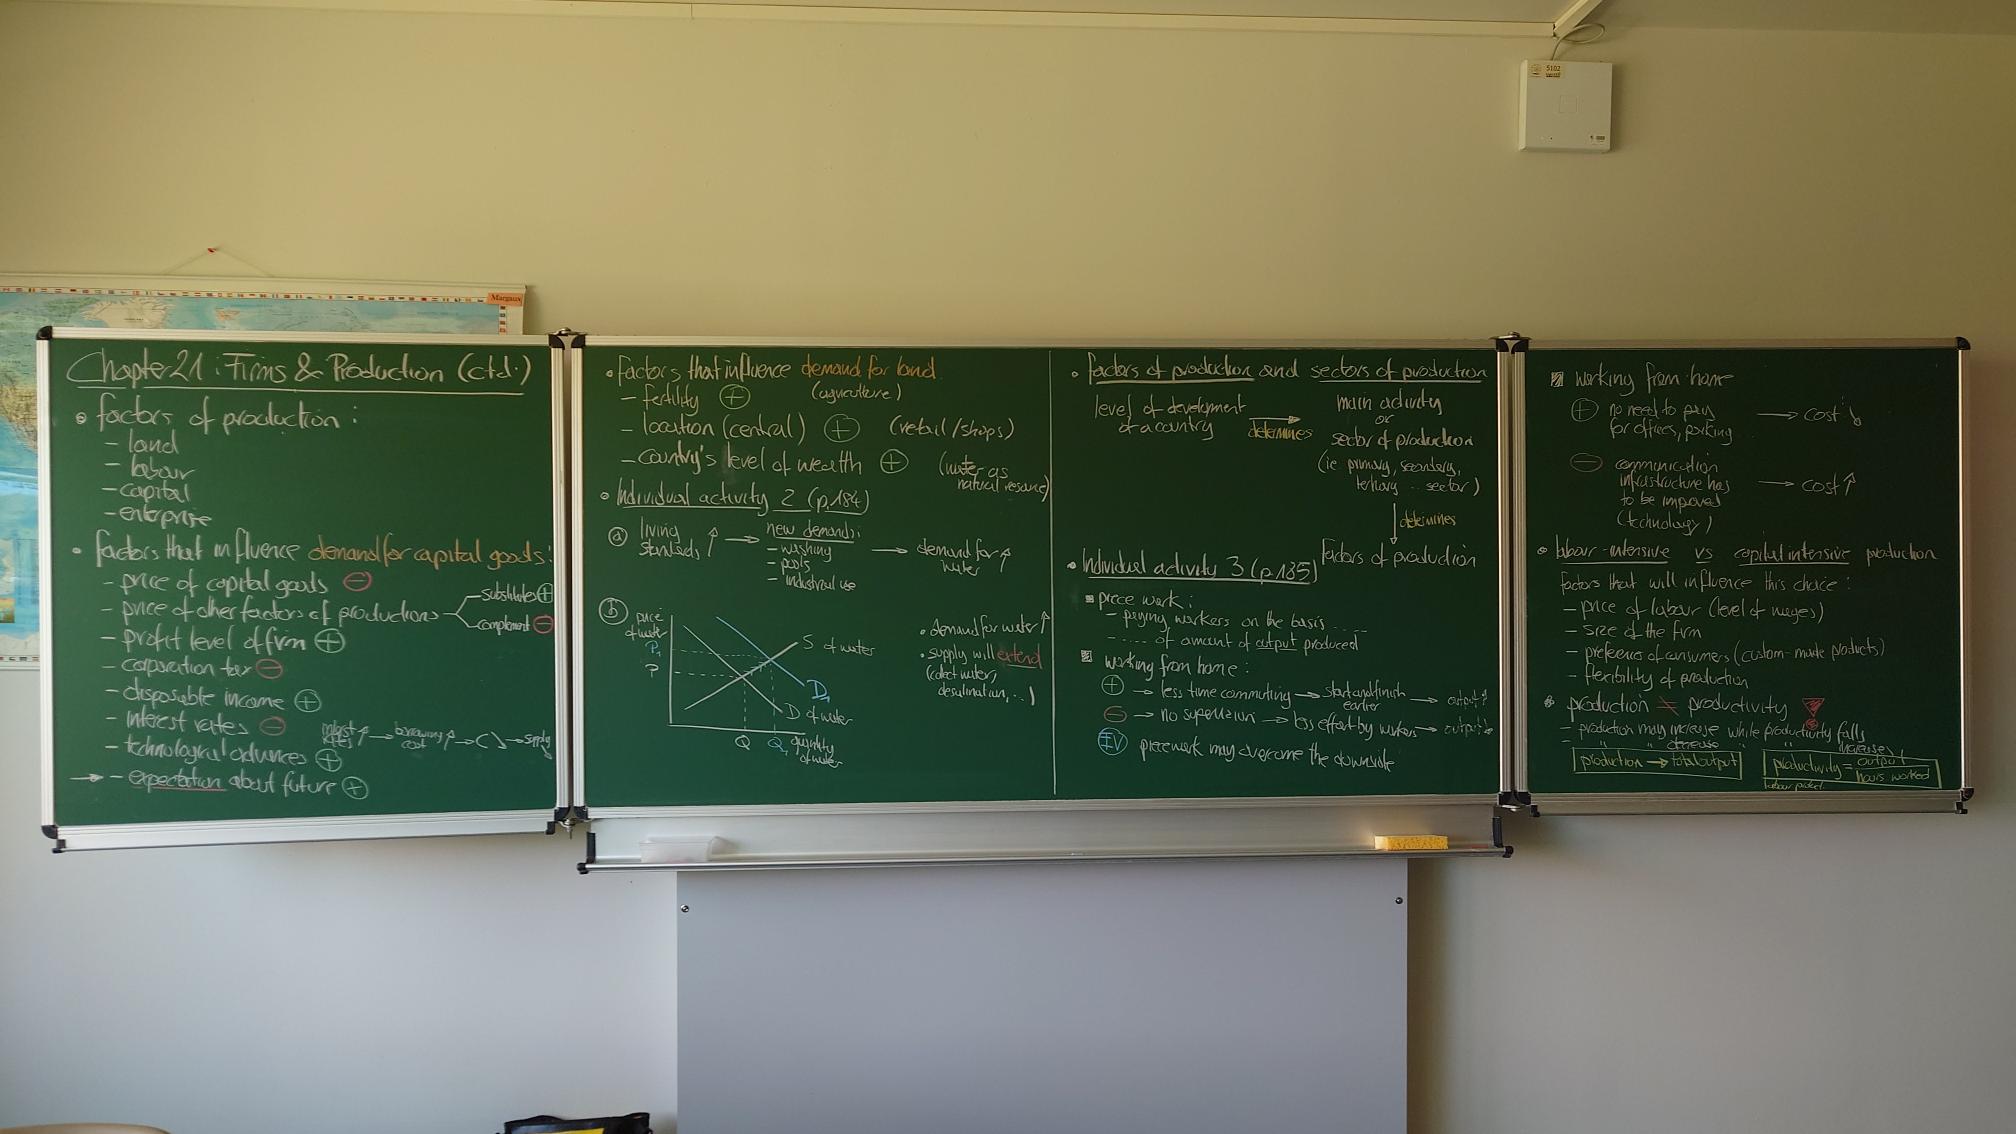 Margaux
5102
Chapter 21 : Firms & Production (ctd.)
• factors of production :
– land
– labour
– capital
– enterprise
• factors that influence demand for capital goods :
– price of capital goods ⊖
– price of other factors of productions
substitutes ⊕
complement ⊖
– profit level of firm ⊕
– corporation tax ⊖
– disposable income ⊕
– interest rates ⊖
interest rates ↑ → borrowing cost ↑ → C ↘ → supply
– technological advances ⊕
→ – expectation about future ⊕
• factors that influence demand for land
– fertility ⊕ (agriculture)
– location (central) ⊕ (retail/shops)
– country's level of wealth ⊕ (water as
natural resource)
• Individual activity 2 (p.184)
ⓐ living standards ↑ → new demands: → demand for water ↑
– washing
– pools
– industrial use
ⓑ price of water
P₁
P
S of water
D₁
D of water
Q Q₁ quantity of water
• demand for water ↑
• supply will extend
(collect water,
desalination, ...)
• factors of production and sectors of production
level of development of a country
determines
main activity
or
sector of production
(ie primary, secondary,
tertiary .. sector)
↓ determines
factors of production
• Individual activity 3 (p.185)
piece work :
– paying workers on the basis ....
– ..... of amount of output produced
working from home :
⊕ → less time commuting → start and finish earlier → output ↑
⊖ → no supervision → less effort by workers → output ↓
EV piecework may overcome the downside
working from home
⊕ no need to pay
for offices, parking
→ cost ↘
⊖ communication
infrastructure has
to be improved
(technology)
→ cost ↑
• labour-intensive vs capital intensive production
factors that will influence this choice :
– price of labour (level of wages)
– size of the firm
– preference of consumers (custom-made products)
– flexibility of production
• production ≠ productivity
– production may increase while productivity falls
– " " decrease " " increases
production → total output
productivity = output / hours worked
labour product.